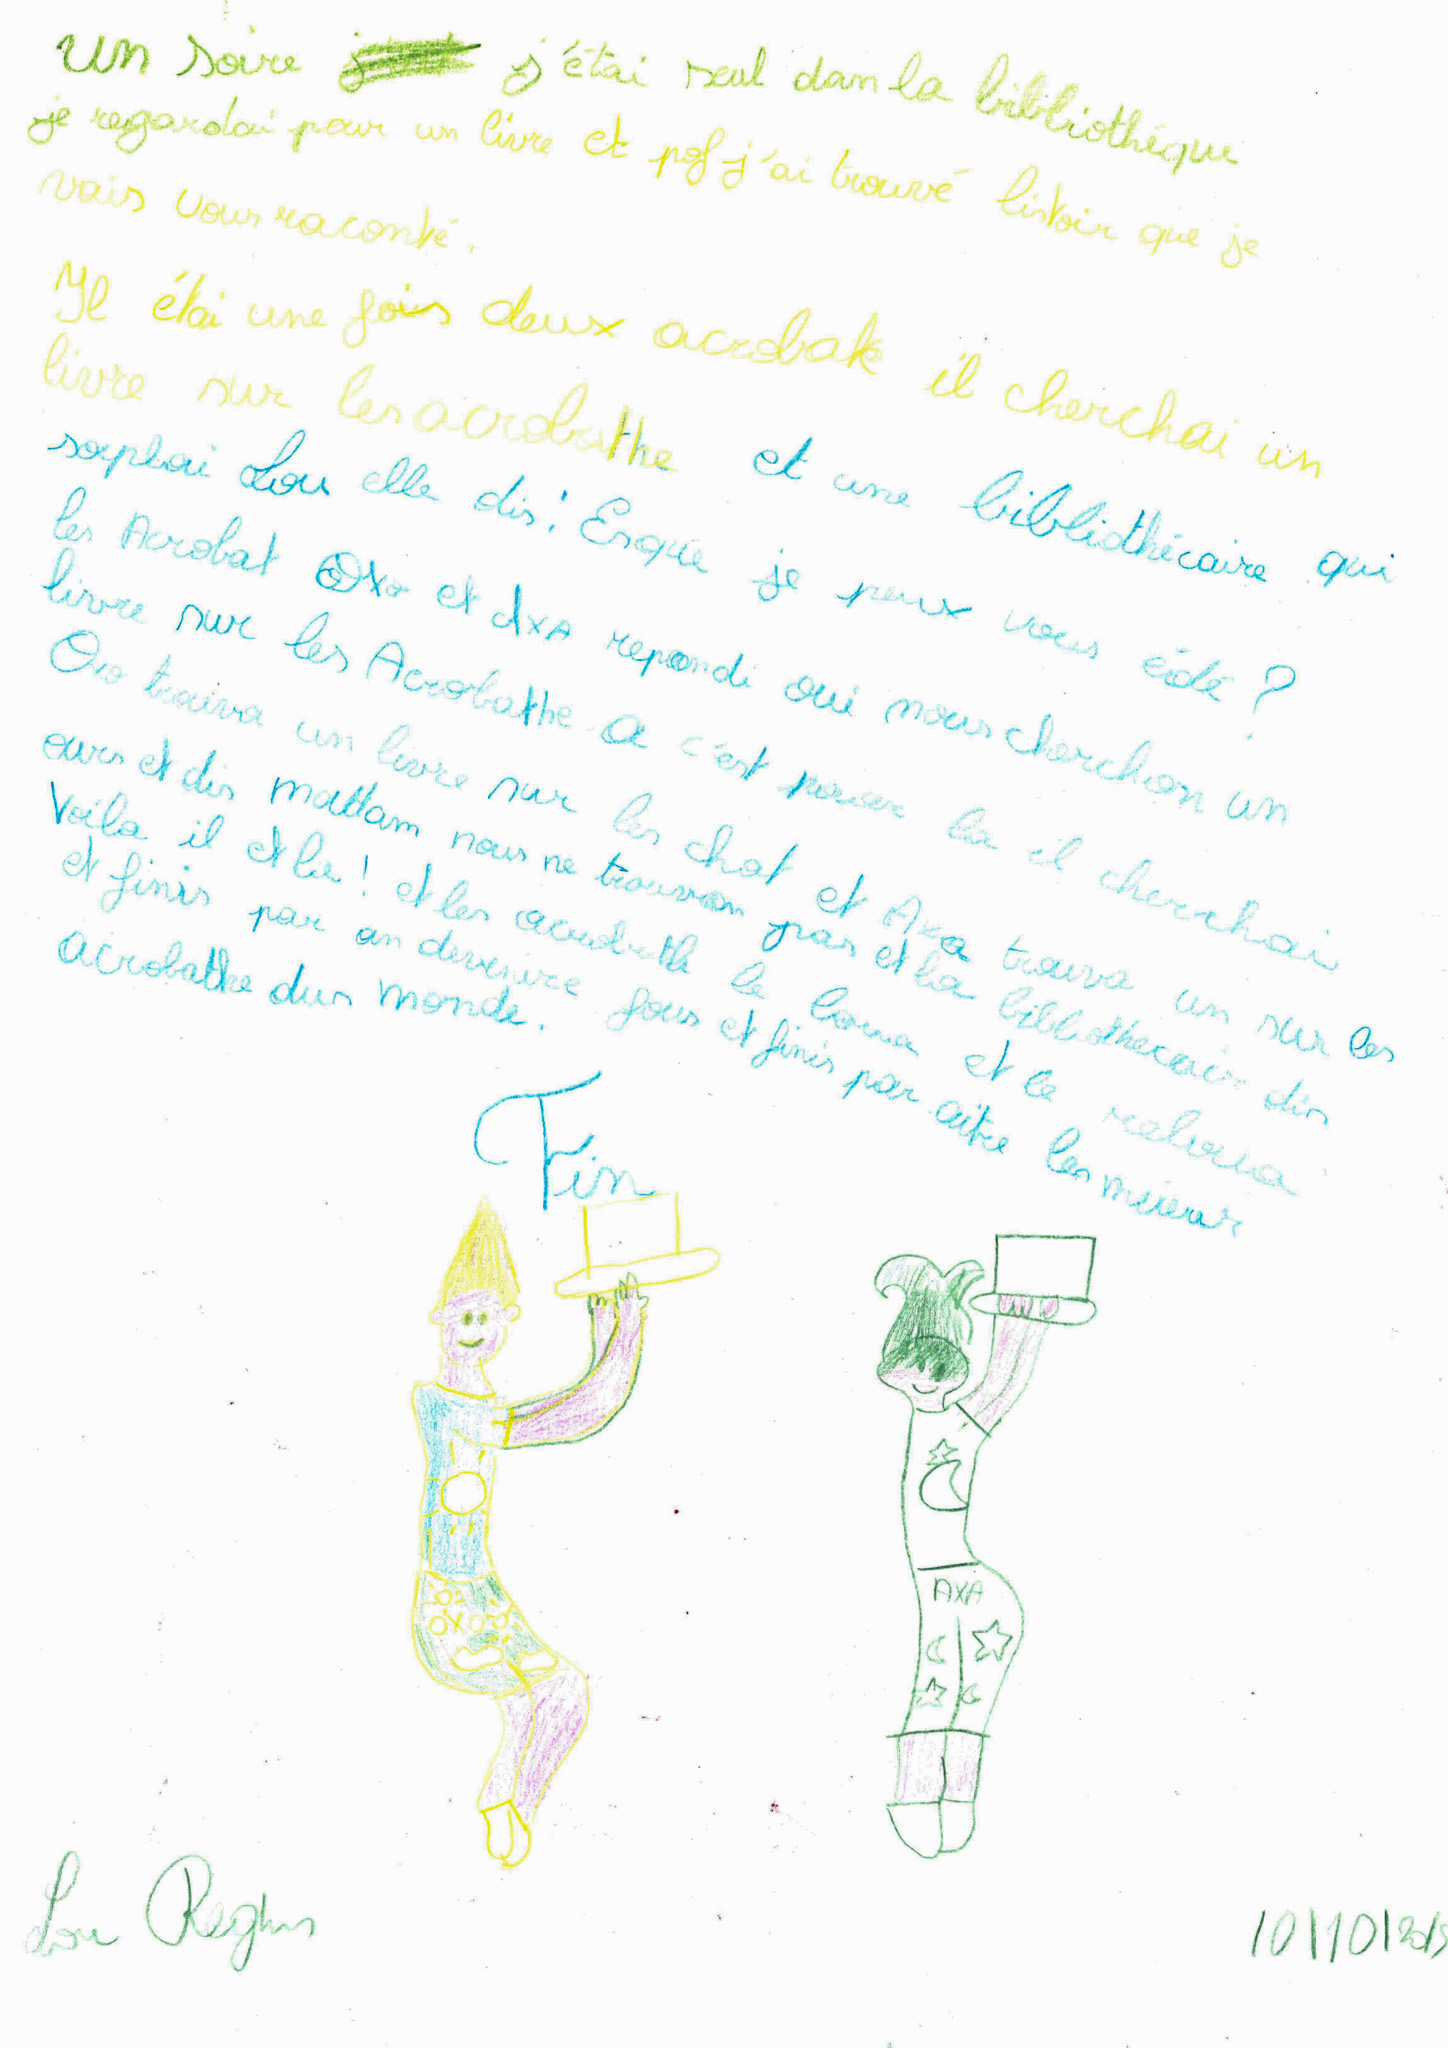 un soire j'étai seul dan la bibliothéque
je regardai pour un livre et pof j'ai trouvé listoir que je
vais vous raconté.
Il étai une fois deux acrobate il cherchai un
livre sur les acrobathe et une bibliothécaire qui
saplai Lou elle dis! Esque je peux vous édé?
les Acrobat Oxo et AxA repondi oui nous cherchon un
livre sur les Acrobathe a c'est pour la il cherchai
Oxo trouva un livre sur les chat et Axa trouva un sur les
ours et dis mattam nous ne trouvon pas et la bibliothecair dis
Voila il et la! et les acrobathe le loua et le reloua
et finis par an devenire fous et finis par aitre les meieur
acrobathe dus monde.
Fin
OXO
AXA
Lou
10/10/2015